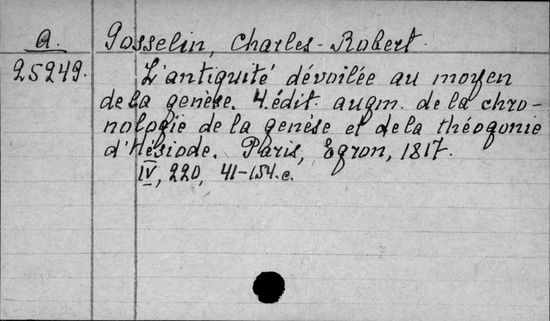 a. Gosselin, Charles-Robert.
25249. L'antiquité dévoilée au moyen
de la genèse. 4. édit. augm. de la chro-
nologie de la genèse et de la théogonie
d'Hésiode. Paris, Egron, 1817.
IV, 220, 41-154. c.